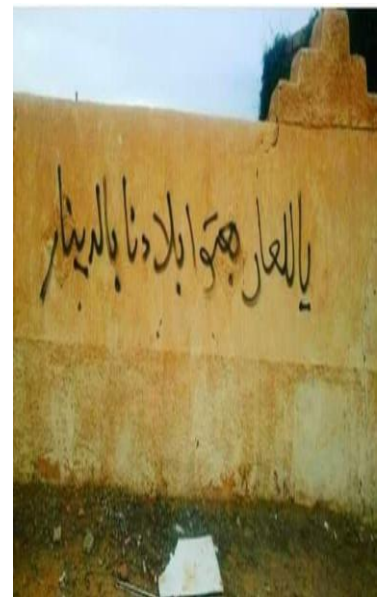 ياللعار بعتوا بلادنا بالدينار